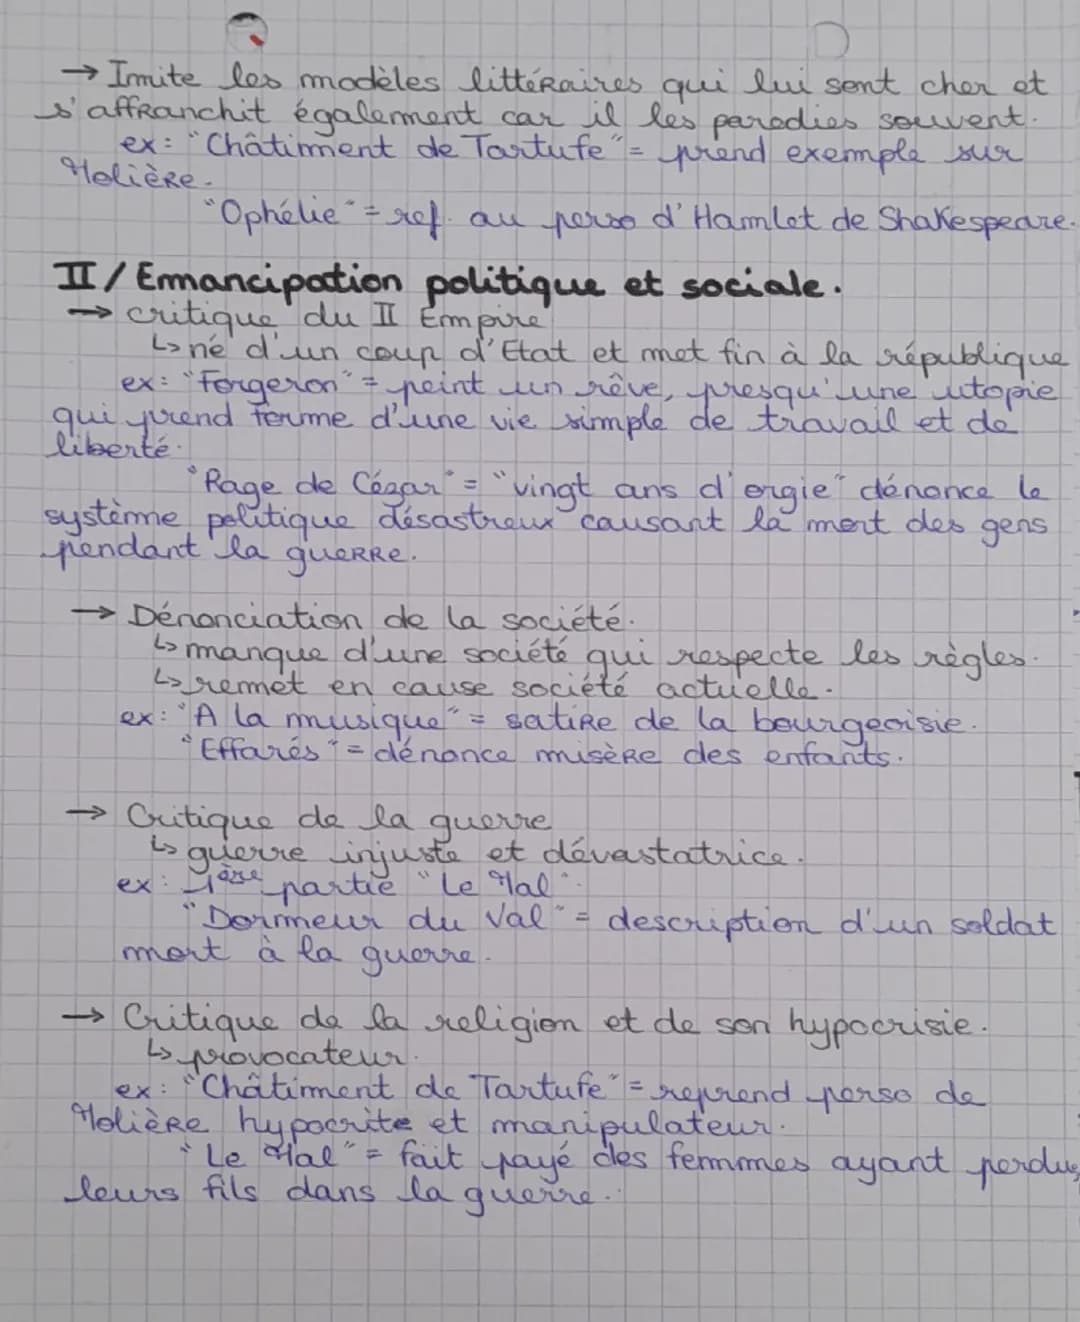 → Imite les modèles littéraires qui lui sont cher et
s'affranchit également car il les parodies souvent.
ex: "Châtiment de Tartufe" = prend exemple sur
Molière.
"Ophélie" = ref. au perso d'Hamlet de Shakespeare.
II / Emancipation politique et sociale.
→ critique du II Empire
↳ né d'un coup d'Etat et met fin à la république
ex: "Forgeron" = peint un rêve, presqu'une utopie
qui prend forme d'une vie simple de travail et de
liberté.
"Rage de César" = "vingt ans d'orgie" dénonce le
système politique désastreux causant la mort des gens
pendant la guerre.
→ Dénonciation de la société.
↳ manque d'une société qui respecte les règles.
↳ remet en cause société actuelle.
ex: "A la musique" = satire de la bourgeoisie.
"Effarés" = dénonce misère des enfants.
→ Critique de la guerre
↳ guerre injuste et dévastatrice.
ex: 1ère partie "Le Mal".
"Dormeur du Val" = description d'un soldat
mort à la guerre.
→ Critique de la religion et de son hypocrisie.
↳ provocateur.
ex: "Châtiment de Tartufe" = reprend perso de
Molière hypocrite et manipulateur.
"Le Mal" = fait payé des femmes ayant perdus
leurs fils dans la guerre.